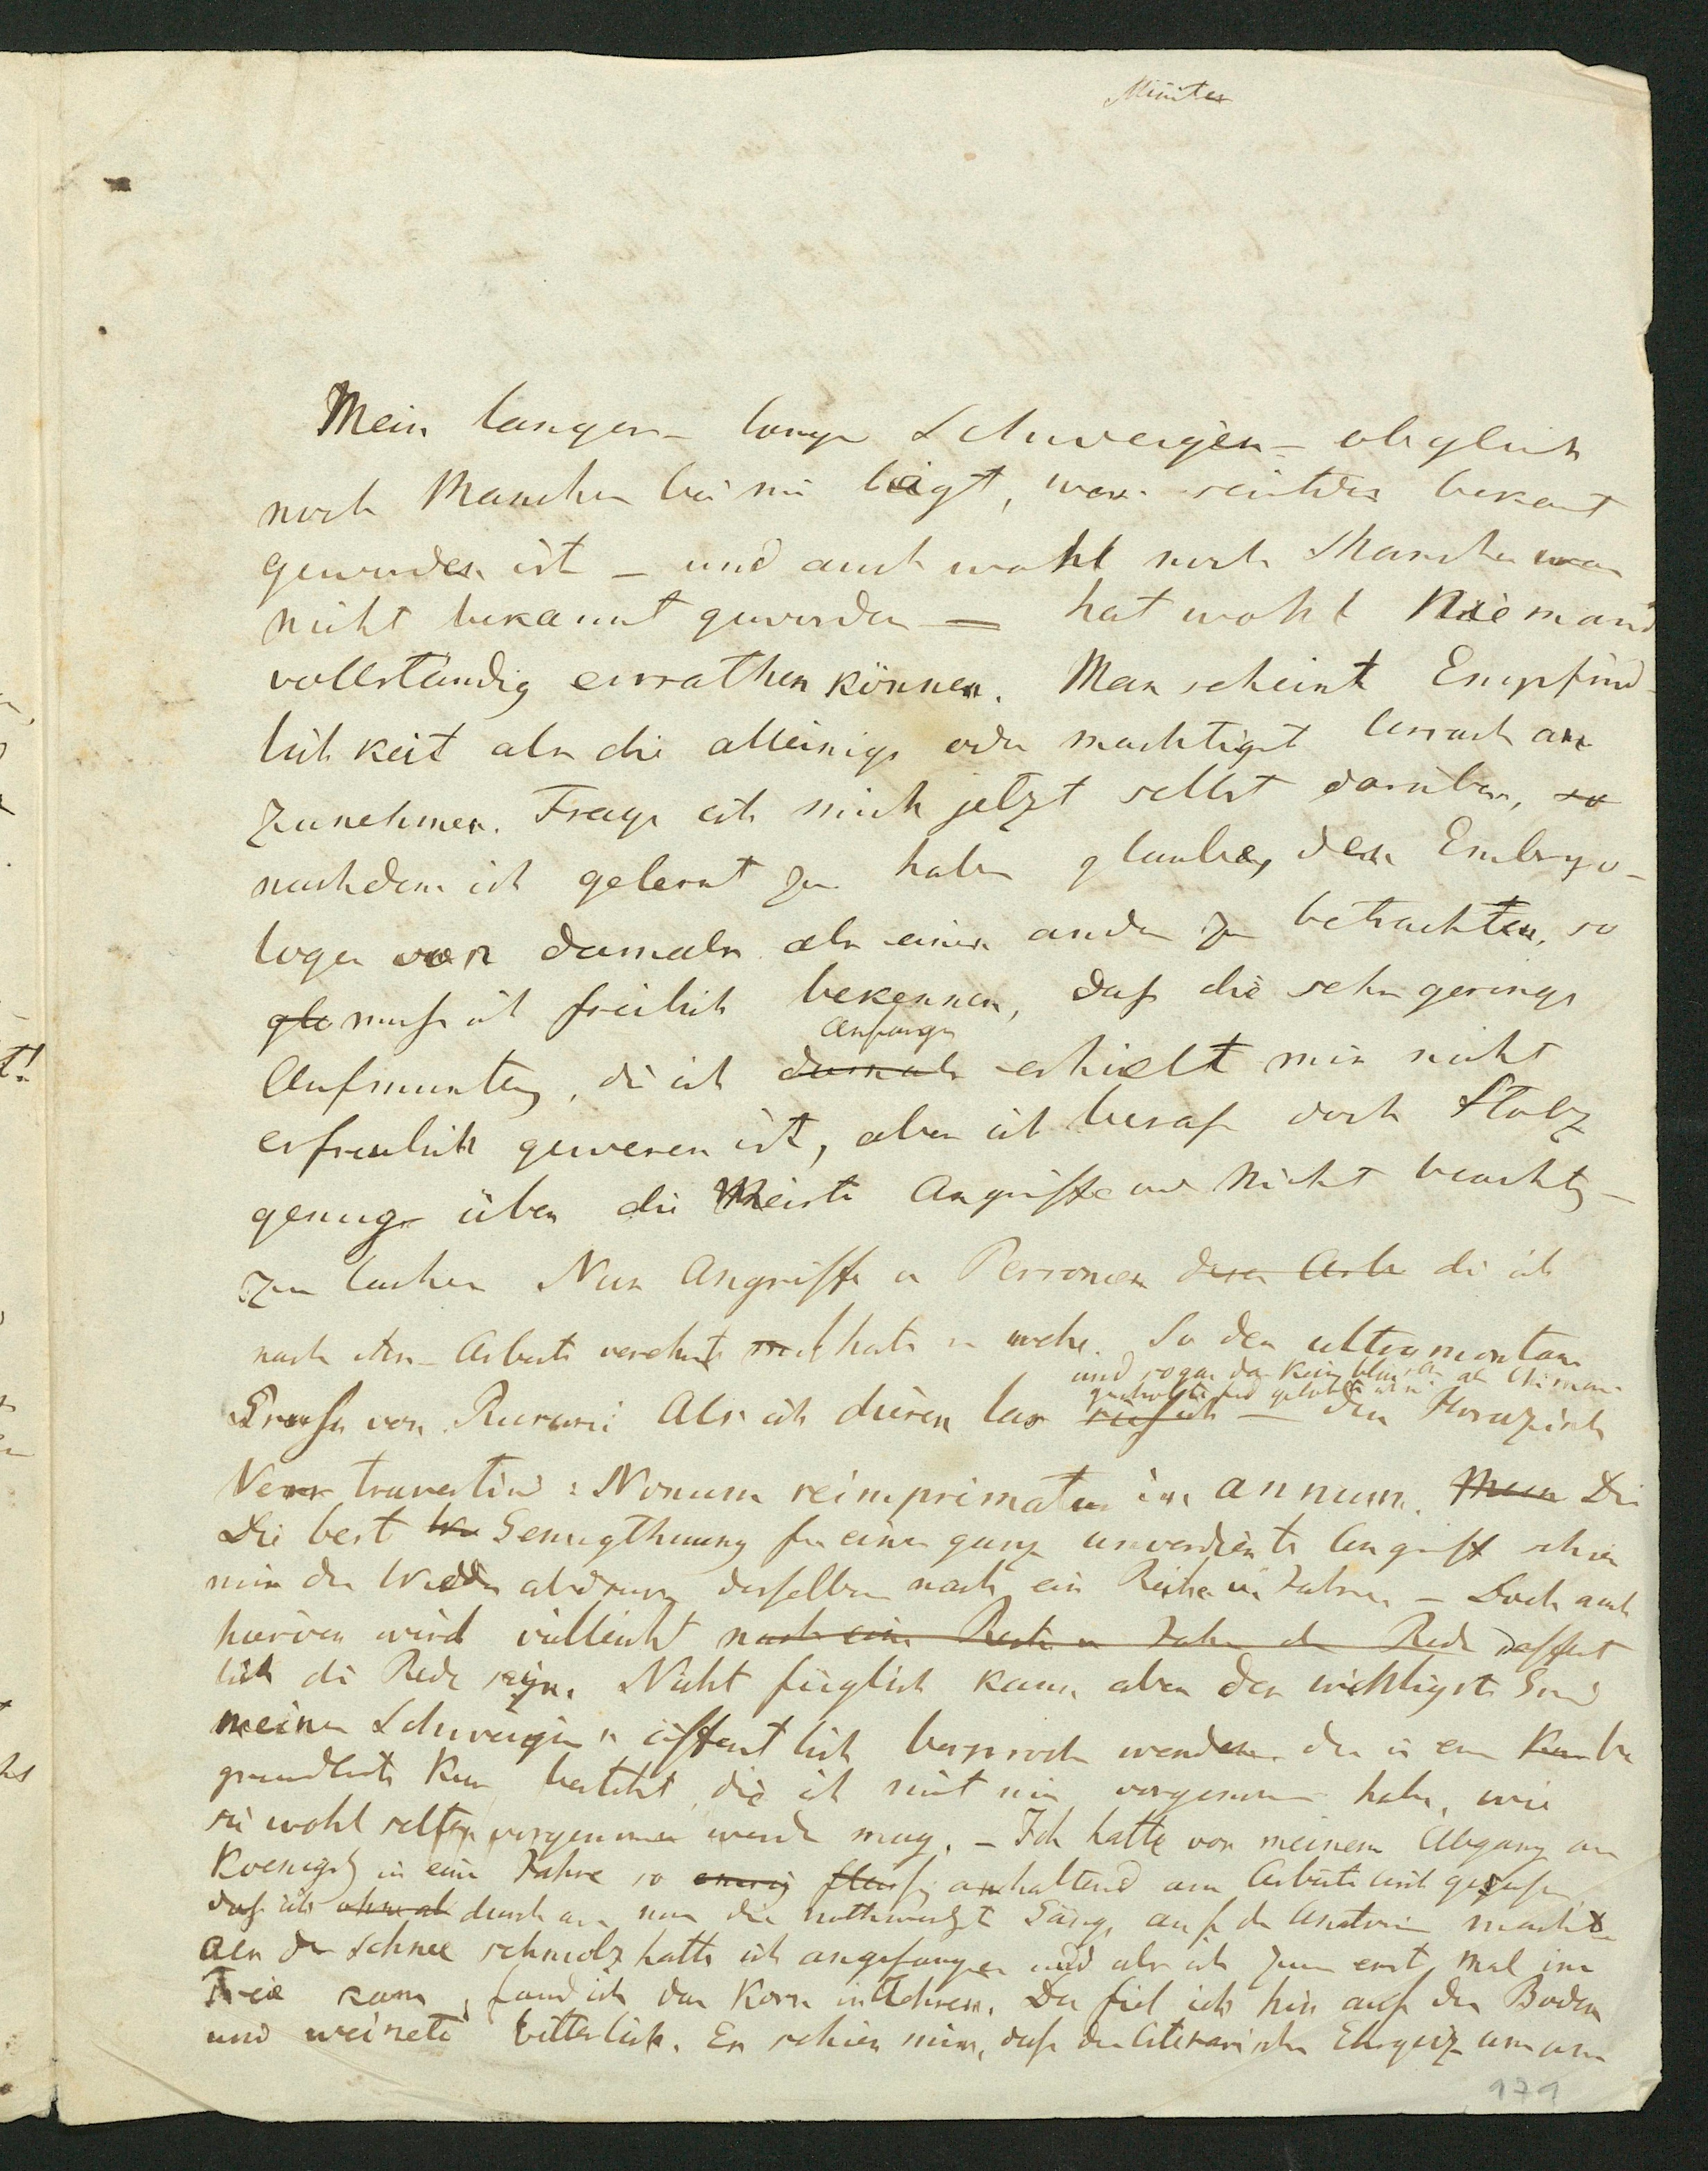 Mein langes – langes Schweigen – obgleich
noch Manches bei mir liegt, was seitdem bekant
geworden ist – und auch wohl noch Manches was
nicht bekannt geworden — hat wohl Niemand
vollständig errathen können. Man scheint Empfind-
lichkeit als die alleinige oder mächtigste Ursach an
zunehmen. Frage ich mich jetzt selbst darüber, so
nachdem ich gelernt zu haben glaube, den Embryo-
logen von damals als einen andern zu betrachten, so
gla muß ich freilich bekennen, daß die sehr geringe
Anfangs
Aufmunterung, die ich damals erhielt mir nicht
erfreulich gewesen ist, aber ich besaß doch Stolz
genug über die Meisten Angriffe und Nicht beachtung
zu lachen Nur Angriffe von Personen deren Arb die ich
nach ihren Arbeiten verehrt hatte wehe. So der ultramontane
und sogar das
gelobt
von Rusconi Als ich diesen las rief ich — den Horazisch
Vers travestirend: Nonum reimprimatur in annum. Die
Die beste Genugthuung für einen ganz unverdienten Angriff schien
mir der Wiederabdruck desselben nach einer Reihe von Jahren. – Doch auch
hiervon wird vielleicht nach einer Reihe von Jahren die Rede öffent
lich die Rede seyn. Nicht füglich kann aber der wichtigste Grund
meines Schweigens öffentlich besprochen werden der in einer
gründlichen Kur besteht, die ich mit mir vorgenommen habe, wie
sie wohl selten vorgenommen werden mag. – Ich hatte vor meinem Abgang von
Koenigsb in einem Jahre so anhaltend am Arbeitstisch gesessen
daß ich durchaus nur die nothwendigsten Gänge auf die Anatomie machte
Als der Schnee schmolz hatte ich angefangen und als ich zum ersten Mal ins
Freie kam, fand ich das Korn in Aehren. Da fiel ich hin auf den Boden
und weinete bitterlich. Es schien mir, daß der literarische Ehrgeiz
979